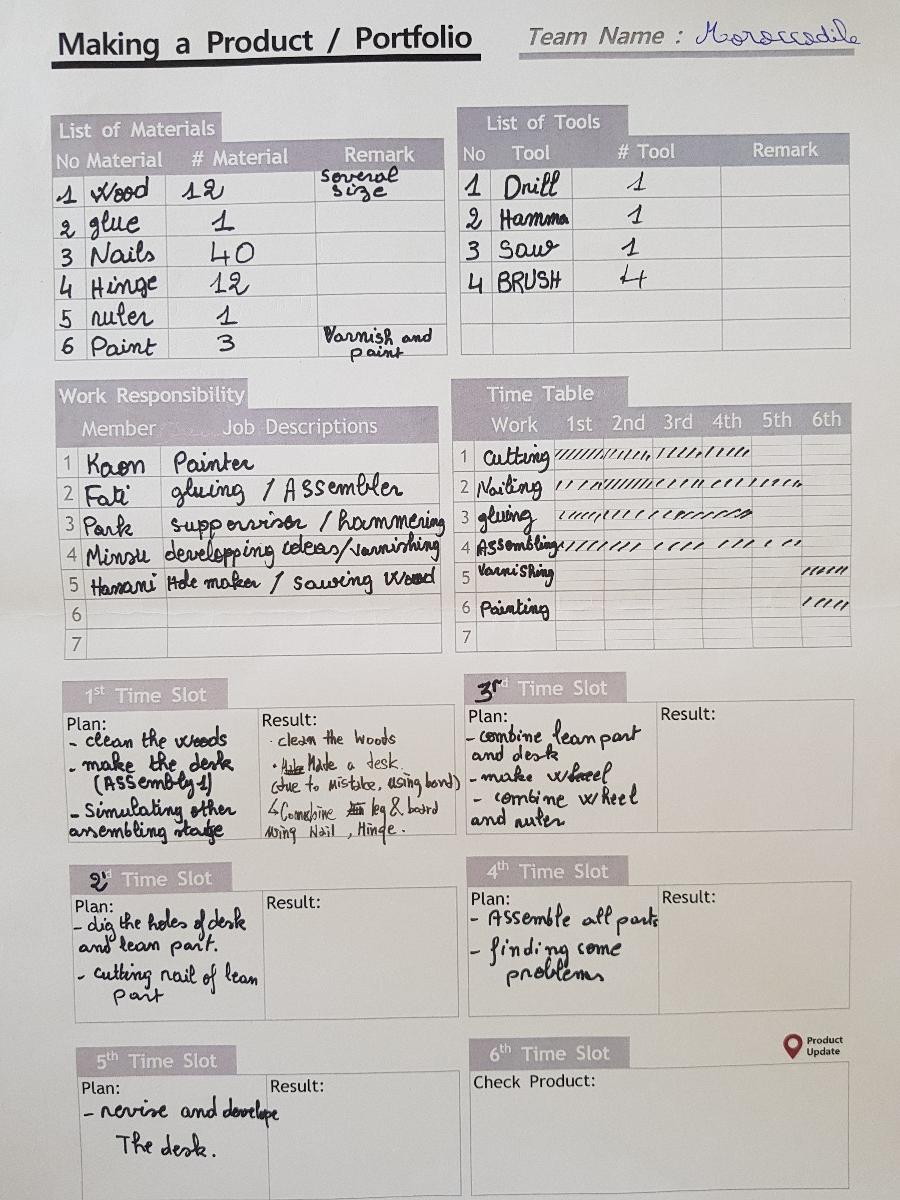 Making a Product / Portfolio
Team Name : Moroccodile
List of Materials
No Material # Material Remark
1 Wood 12 Several Size
2 glue 1
3 Nails 40
4 Hinge 12
5 ruler 1
6 Paint 3 Varnish and paint
List of Tools
No Tool # Tool Remark
1 Drill 1
2 Hammer 1
3 Saw 1
4 BRUSH 4
Work Responsibility
Member Job Descriptions
1 Kaon Painter
2 Fati gluing / ASSEMBLER
3 Park suppervisor / hammering
4 Minsu developping ideas/varnishing
5 Hanani Hole maker / sawing Wood
6
7
Time Table
Work 1st 2nd 3rd 4th 5th 6th
1 Cutting
2 Nailing
3 gluing
4 Assembling
5 Varnishing
6 Painting
7
1st Time Slot
Plan:
- clean the woods
- make the desk
(ASSEMBLY 1)
- Simulating other
assembling stage
Result:
· clean the Woods
· Made a desk.
(due to mistake, using bond)
↳ Combine leg & board
using Nail, Hinge.
3rd Time Slot
Plan:
- combine lean part
and desk
- make wheel
- combine wheel
and ruler
Result:
2nd Time Slot
Plan:
- dig the holes of desk
and lean part.
- cutting nail of lean
part
Result:
4th Time Slot
Plan:
- Assemble all parts
- finding some
problems
Result:
5th Time Slot
Plan:
- revise and develope
The desk.
Result:
6th Time Slot
Product
Update
Check Product: